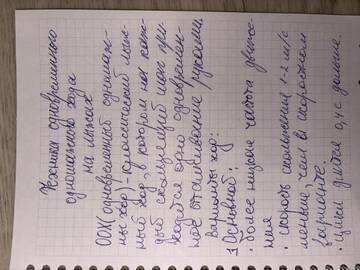 Техника одновременного
одношажного хода
на лыжах
ООХ (одновременный одношаж-
ный ход) - классический лыж-
ный ход, в котором на каж-
дый скользящий шаг при-
ходится одно одновремен-
ное отталкивание руками
Варианты хода:
1 Основной:
· более низкая частота движе-
ния
· скорость скольжения 1-2 м/с
меньше, чем в скоростном
варианте
· цикл длится 0,4 с дольше.